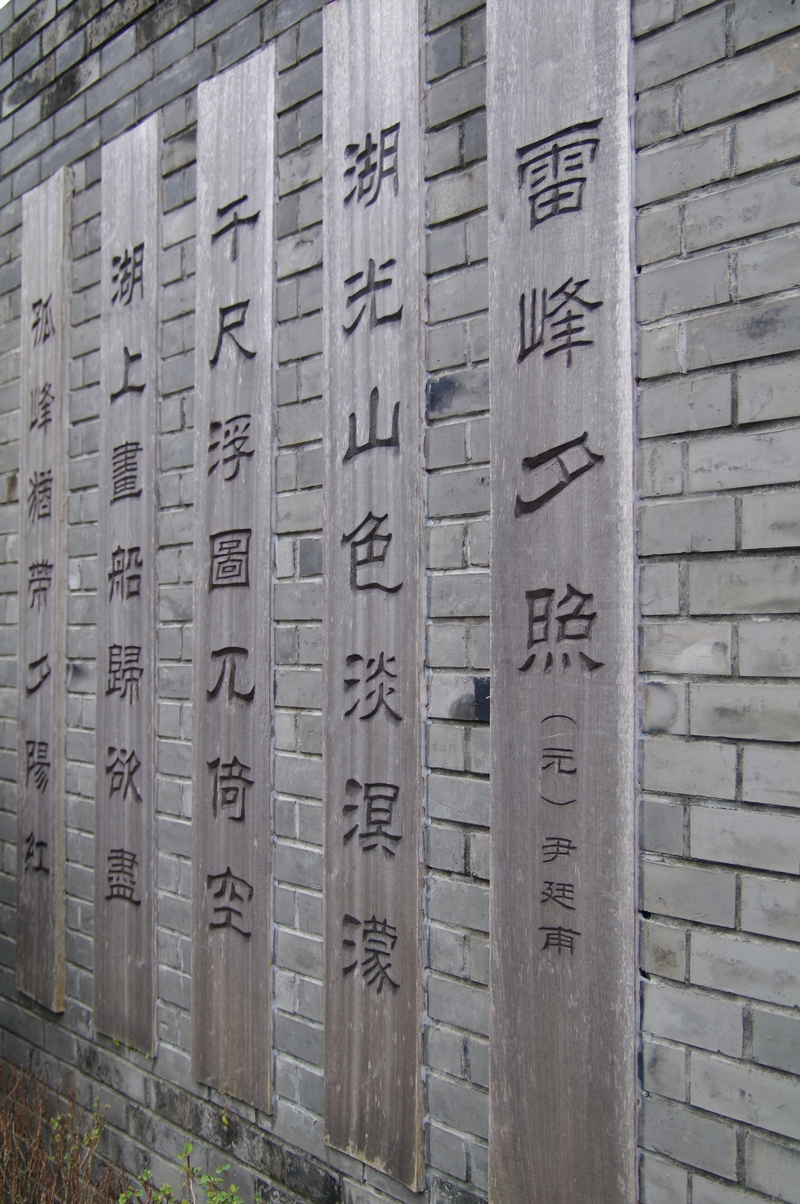 雷峰夕照（元）尹廷甫
湖光山色淡溟濛
千尺浮圖兀倚空
湖上畫船歸欲盡
孤峰猶帶夕陽紅